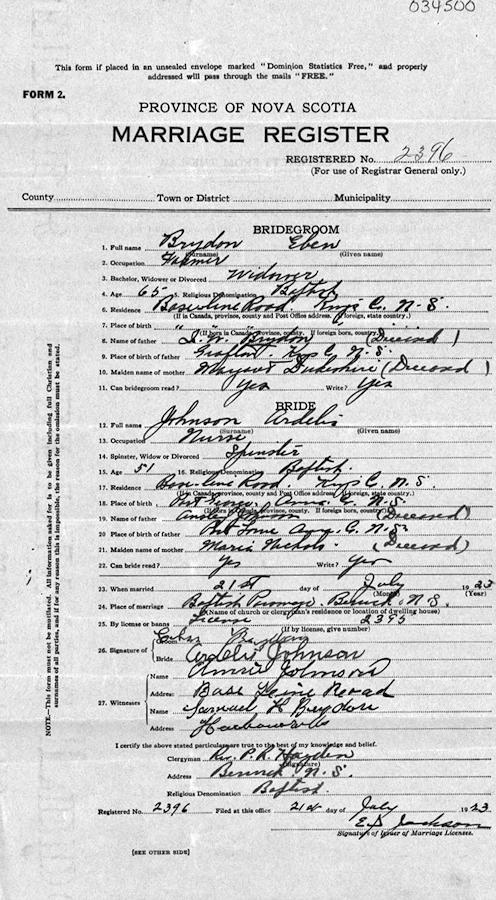 034500
This form if placed in an unsealed envelope marked "Dominion Statistics Free," and properly
addressed will pass through the mails "FREE."
FORM 2.
PROVINCE OF NOVA SCOTIA
MARRIAGE REGISTER
REGISTERED No. 2396
(For use of Registrar General only.)
County Town or District Municipality
BRIDEGROOM
1. Full name Brydon Eben
(Surname) (Given name)
2. Occupation Farmer
3. Bachelor, Widower or Divorced Widower
4. Age 65 5. Religious Denomination Baptist
6. Residence Baseline Road. Kings C. N.S.
(If is Canada, province, county and Post Office address. If foreign, state country.)
7. Place of birth " " "
(If born in Canada, province, county. If foreign born, state country.)
8. Name of father Brydon (Deceased)
9. Place of birth of father Grafton. Kings C. N.S.
10. Maiden name of mother Margaret (Deceased)
11. Can bridegroom read? Yes Write? Yes
BRIDE
12. Full name Johnson Ardelia
(Surname) (Given name)
13. Occupation Nurse
14. Spinster, Widow or Divorced Spinster
15. Age 51 16. Religious Denomination Baptist.
17. Residence Base-line Road. Kings C. N.S.
(If is Canada, province, county and Post Office address. If foreign, state country.)
18. Place of birth Port Anna. C. N.S.
(If born in Canada, province, county. If foreign born, state country.)
19. Name of father Johnson (Deceased)
20. Place of birth of father Port Lorne Anna. C. N.S.
21. Maiden name of mother Maria Nichols (Deceased)
22. Can bride read? Yes Write? Yes
23. When married 21st day of July 1923
(Month) (Year)
24. Place of marriage Baptist Parsonage. Berwick N.S.
(Name of church or clergyman's residence or location of dwelling house)
25. By license or banns License 2395
(If by license, give number)
Groom Eben Brydon
26. Signature of
Bride Ardelia Johnson
Name Annie Johnson
Address Base Leine Road
27. Witnesses
Name Samuel H Brydon
Address Harbourville
I certify the above stated particulars are true to the best of my knowledge and belief.
Clergyman Rev. P.R. Hayden
(Signature)
Address Berwick N.S.
Religious Denomination Baptist.
Registered No. 2396 Filed at this office 21st day of July 1923
E.D. Jackson
Signature of Issuer of Marriage Licenses.
(SEE OTHER SIDE)
NOTE—This form must not be mutilated. All information asked for is to be given including full Christian and
surnames of all parties, and if for any reason this is impossible, the reason for the omission must be stated.